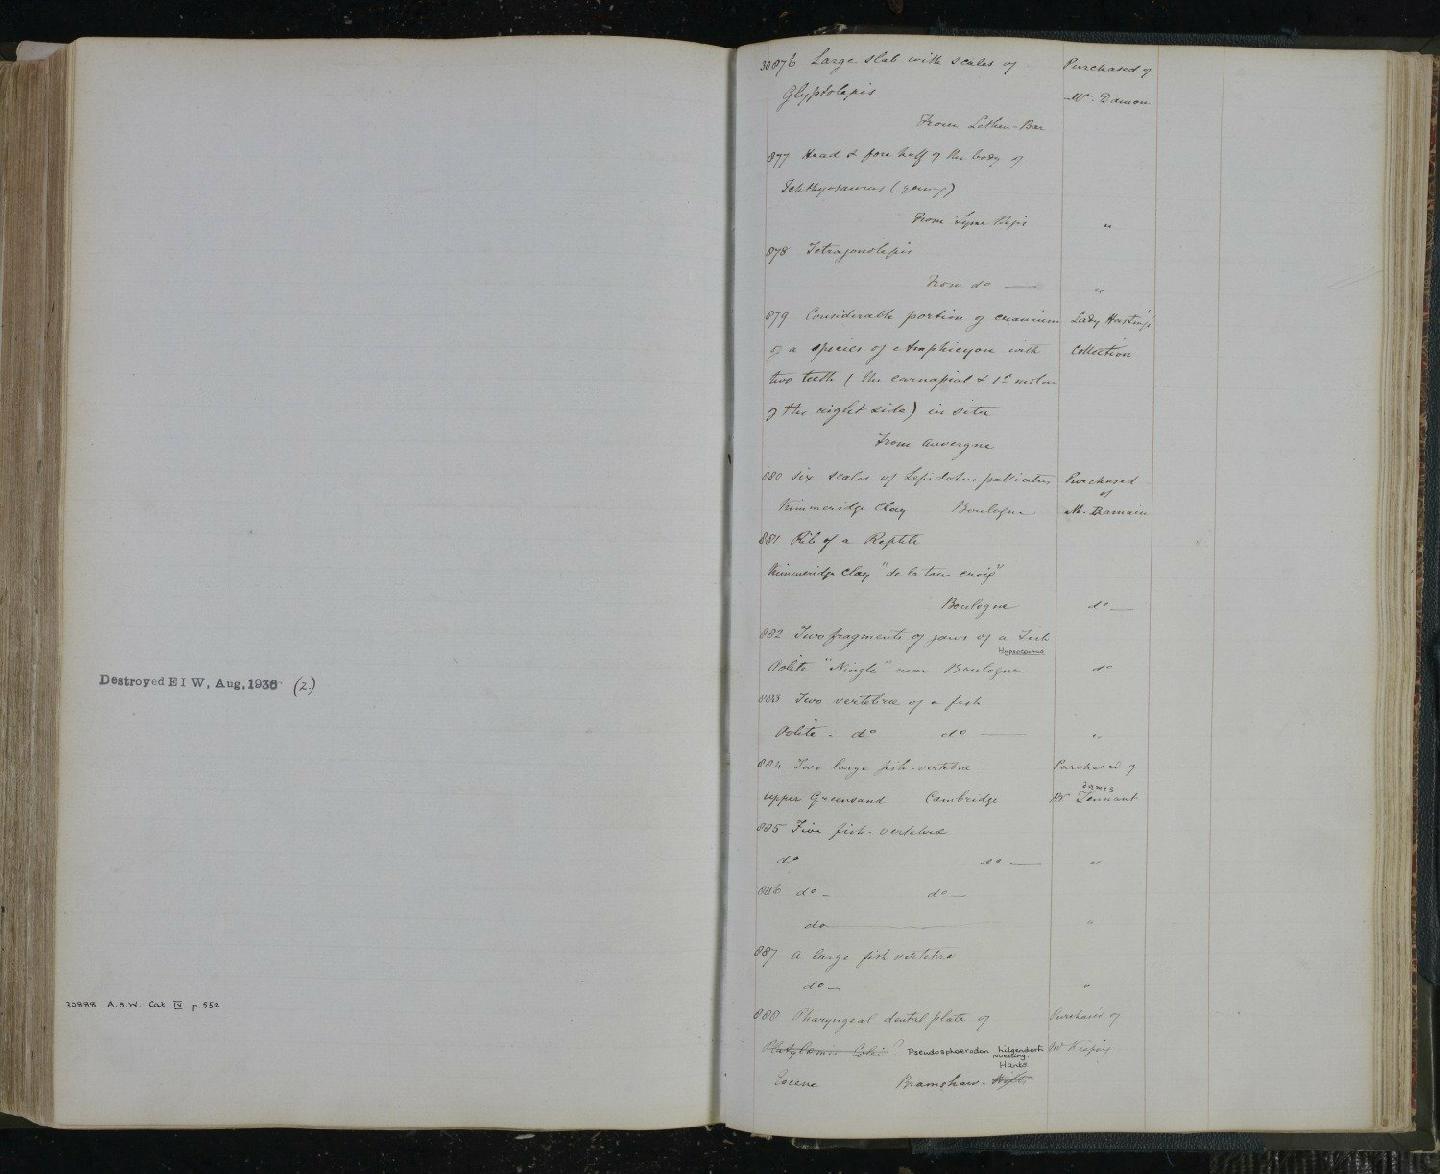 Destroyed E I W, Aug, 1936 (2.)
A.S.W. Cat IV p 552
38876 Large slab with scales of Purchased of
Glyptolepis Mr. Damon
From Lethen-Bar
877 Head & fore half of the body of
Ichthyosaurus (young)
From Lyme Regis "
878 Tetragonolepis
From do — "
879 Considerable portion of cranium Lady Hastings
of a species of Amphicyon with Collection
two teeth (the carnassial & 1st molar
of the right side) in situ
From Auvergne
880 Six scales of Purchased
of
Kimmeridge Clay Boulogne Mr.
881 Rib of a Reptile
Kimmeridge Clay
Boulogne do —
882 Two fragments of jaws of a Fish
Oolite near Boulogne do
883 Two vertebrae of a fish
Oolite - do do — "
884 Two large fish-vertebrae Purchased of
James
upper Greensand Cambridge Mr Tennant
885 Five fish-vertebrae
do do — "
886 do — do —
do — "
887 A large fish vertebra
do — "
888 Pharyngeal dental plate of Purchased of
Pseudosphaerodon hilgendorfi Mr
Noetling.
Hants
Eocene Bramshaw.